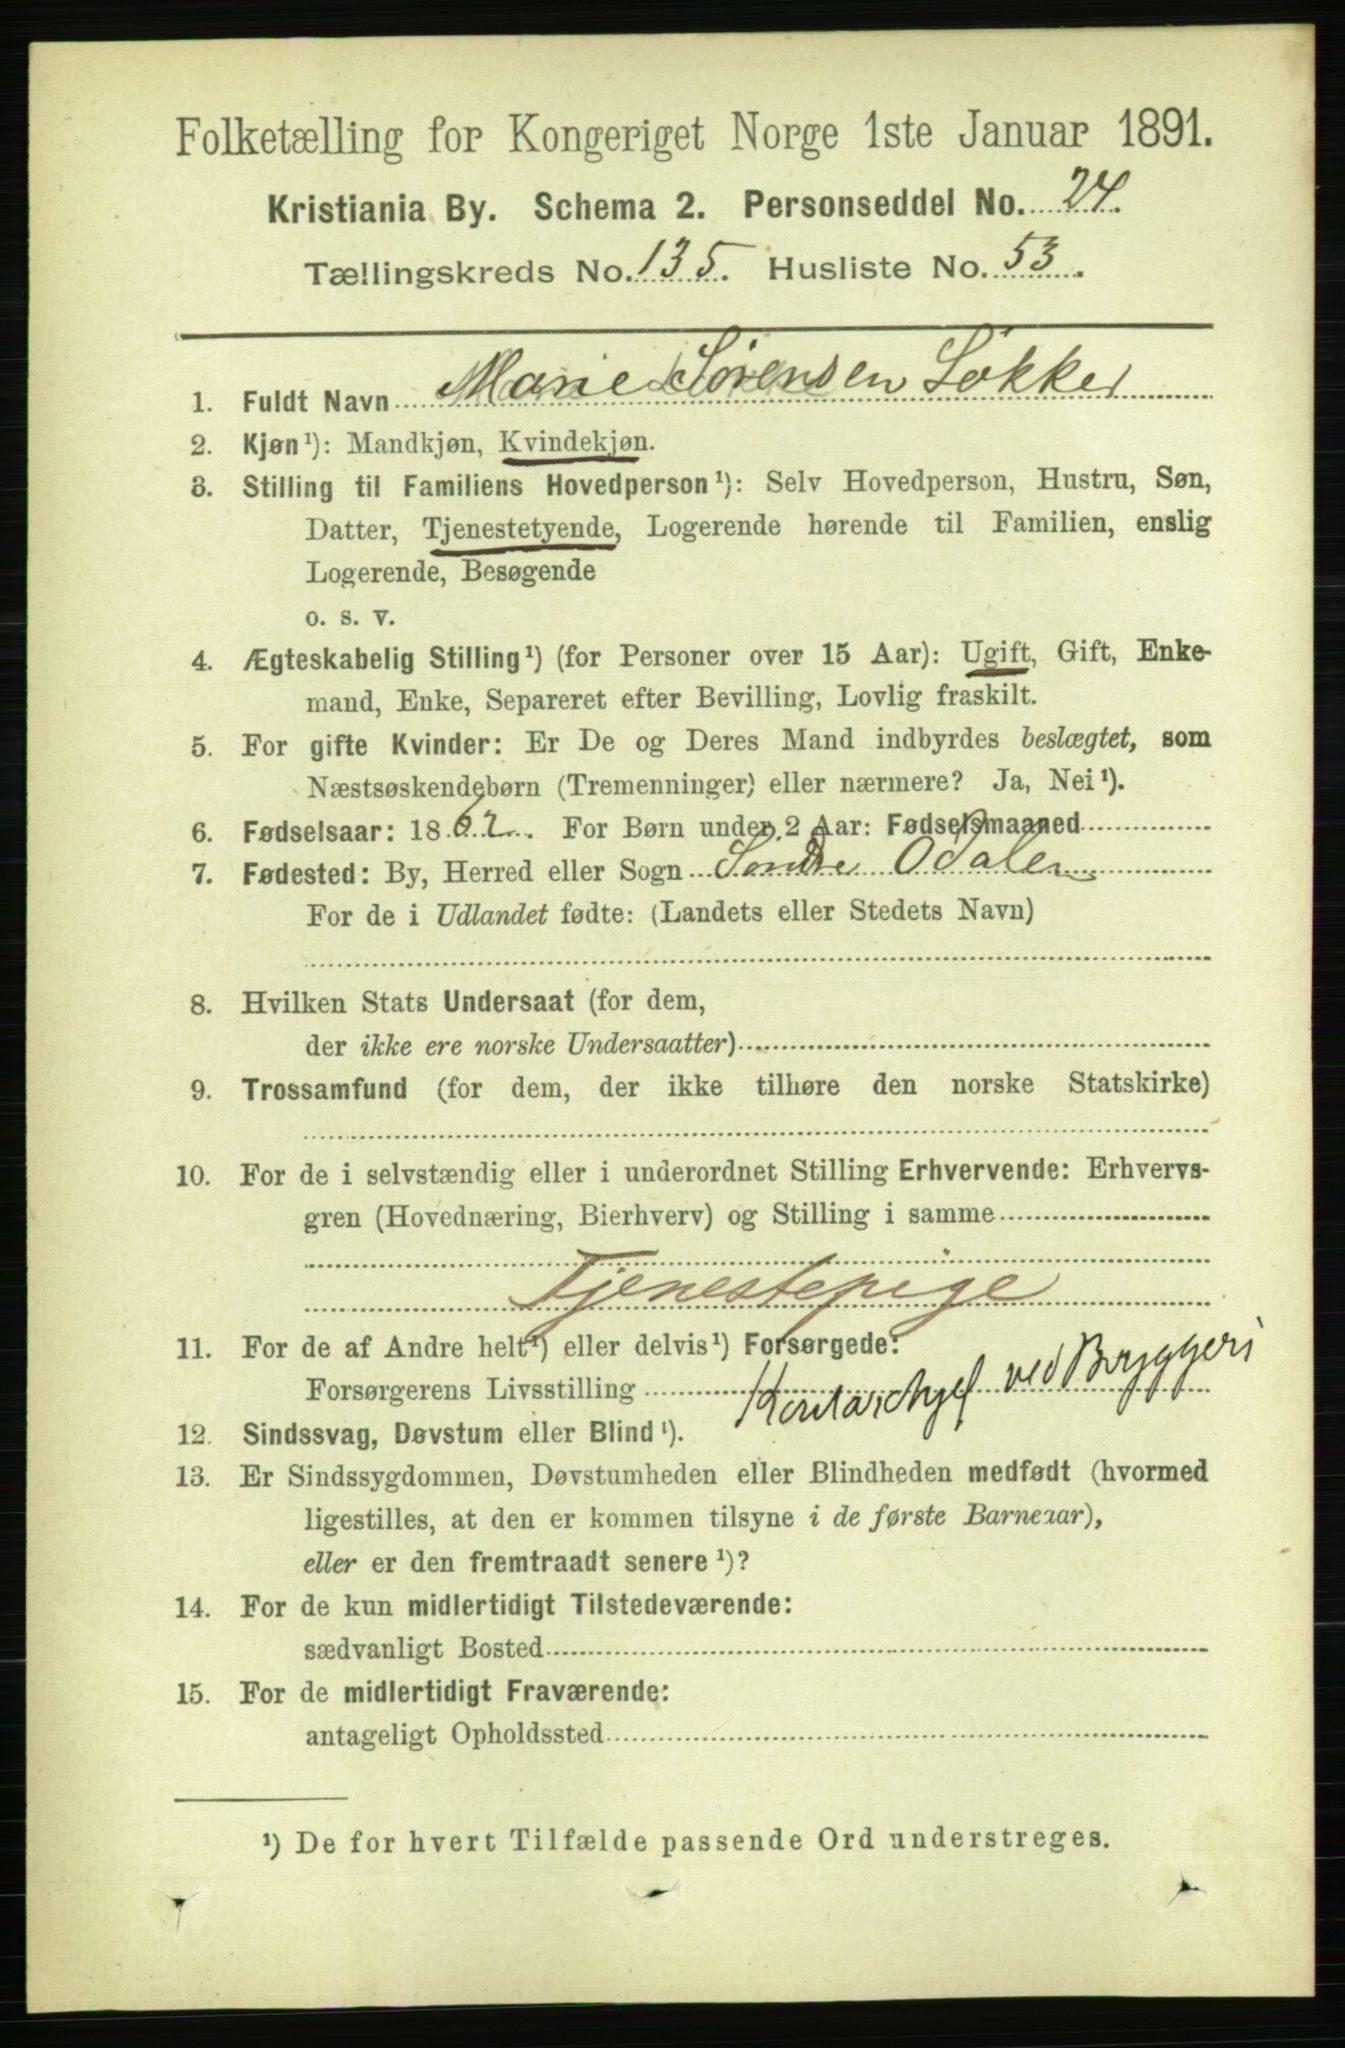 Folketælling for Kongeriget Norge 1ste Januar 1891.
Kristiania By. Schema 2. Personseddel No. 24.
Tællingskreds No. 135. Husliste No. 53.
1. Fuldt Navn Marie Sørensen Løkker
2. Kjøn¹): Mandkjøn, Kvindekjøn.
3. Stilling til Familiens Hovedperson¹): Selv Hovedperson, Hustru, Søn,
Datter, Tjenestetyende, Logerende hørende til Familien, enslig
Logerende, Besøgende
o. s. v.
4. Ægteskabelig Stilling¹) (for Personer over 15 Aar): Ugift, Gift, Enke-
mand, Enke, Separeret efter Bevilling, Lovlig fraskilt.
5. For gifte Kvinder: Er De og Deres Mand indbyrdes beslægtet, som
Næstsøskendebørn (Tremenninger) eller nærmere? Ja, Nei¹).
6. Fødselsaar: 1867. For Børn under 2 Aar: Fødselsmaaned
7. Fødested: By, Herred eller Sogn Søndre Odalen
For de i Udlandet fødte: (Landets eller Stedets Navn)
8. Hvilken Stats Undersaat (for dem,
der ikke ere norske Undersaatter)
9. Trossamfund (for dem, der ikke tilhøre den norske Statskirke)
10. For de i selvstændig eller i underordnet Stilling Erhvervende: Erhvervs-
gren (Hovednæring, Bierhverv) og Stilling i samme
Tjenestepige
11. For de af Andre helt¹) eller delvis¹) Forsørgede:
Forsørgerens Livsstilling ved Bryggeri
12. Sindssvag, Døvstum eller Blind¹).
13. Er Sindssygdommen, Døvstumheden eller Blindheden medfødt (hvormed
ligestilles, at den er kommen tilsyne i de første Barneaar),
eller er den fremtraadt senere¹)?
14. For de kun midlertidigt Tilstedeværende:
sædvanligt Bosted
15. For de midlertidigt Fraværende:
antageligt Opholdssted
¹) De for hvert Tilfælde passende Ord understreges.